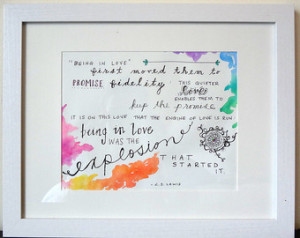 "BEING IN LOVE"
first moved them to
PROMISE fidelity. THIS QUIETER
love
ENABLES THEM TO
keep the promise.
IT IS ON THIS LOVE THAT THE ENGINE OF LOVE IS RUN:
being in love
WAS THE
explosion
THAT
STARTED
IT.
-C.S. LEWIS